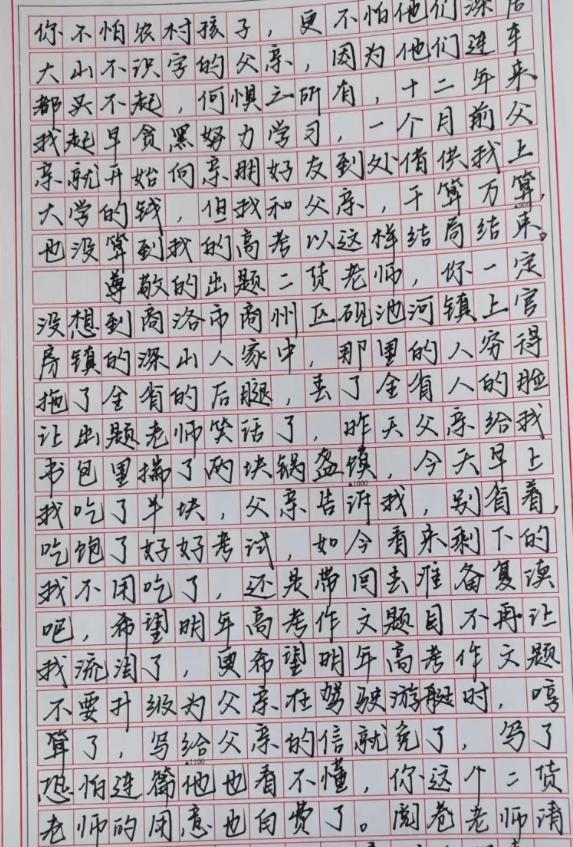 你不怕农村孩子，更不怕他们深居
大山不识字的父亲，因为他们连车
都买不起，何惧之所有，十二年来
我起早贪黑努力学习，一个月前父
亲就开始向亲朋好友到处借供我上
大学的钱，但我和父亲，千算万算，
▲900
也没算到我的高考以这样结局结束。
尊敬的出题二货老师，你一定
没想到商洛市商州区砚池河镇上官
房镇的深山人家中，那里的人穷得
拖了全省的后腿，丢了全省人的脸
让出题老师笑话了，昨天父亲给我
书包里揣了两块锅盔馍，今天早上
▲1000
我吃了半块，父亲告诉我，别省着，
吃饱了好好考试，如今看来剩下的
我不用吃了，还是带回去准备复读
吧，希望明年高考作文题目不再让
我流泪了，更希望明年高考作文题
不要升级为父亲在驾驶游艇时，哼
算了，写给父亲的信就免了，写了
▲1100
恐怕连篇他也看不懂，你这个二货
老师的用意也白费了。阅卷老师请